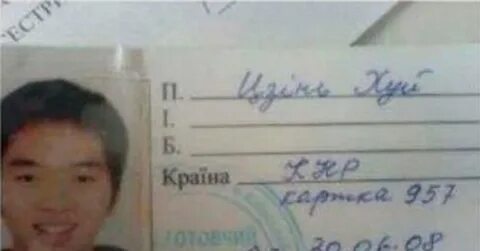 СЕСТРИ
П. Цзінь Хуй
І.
Б.
Країна КНР
картка 957
ГОТОВЧИЙ
20.06.08